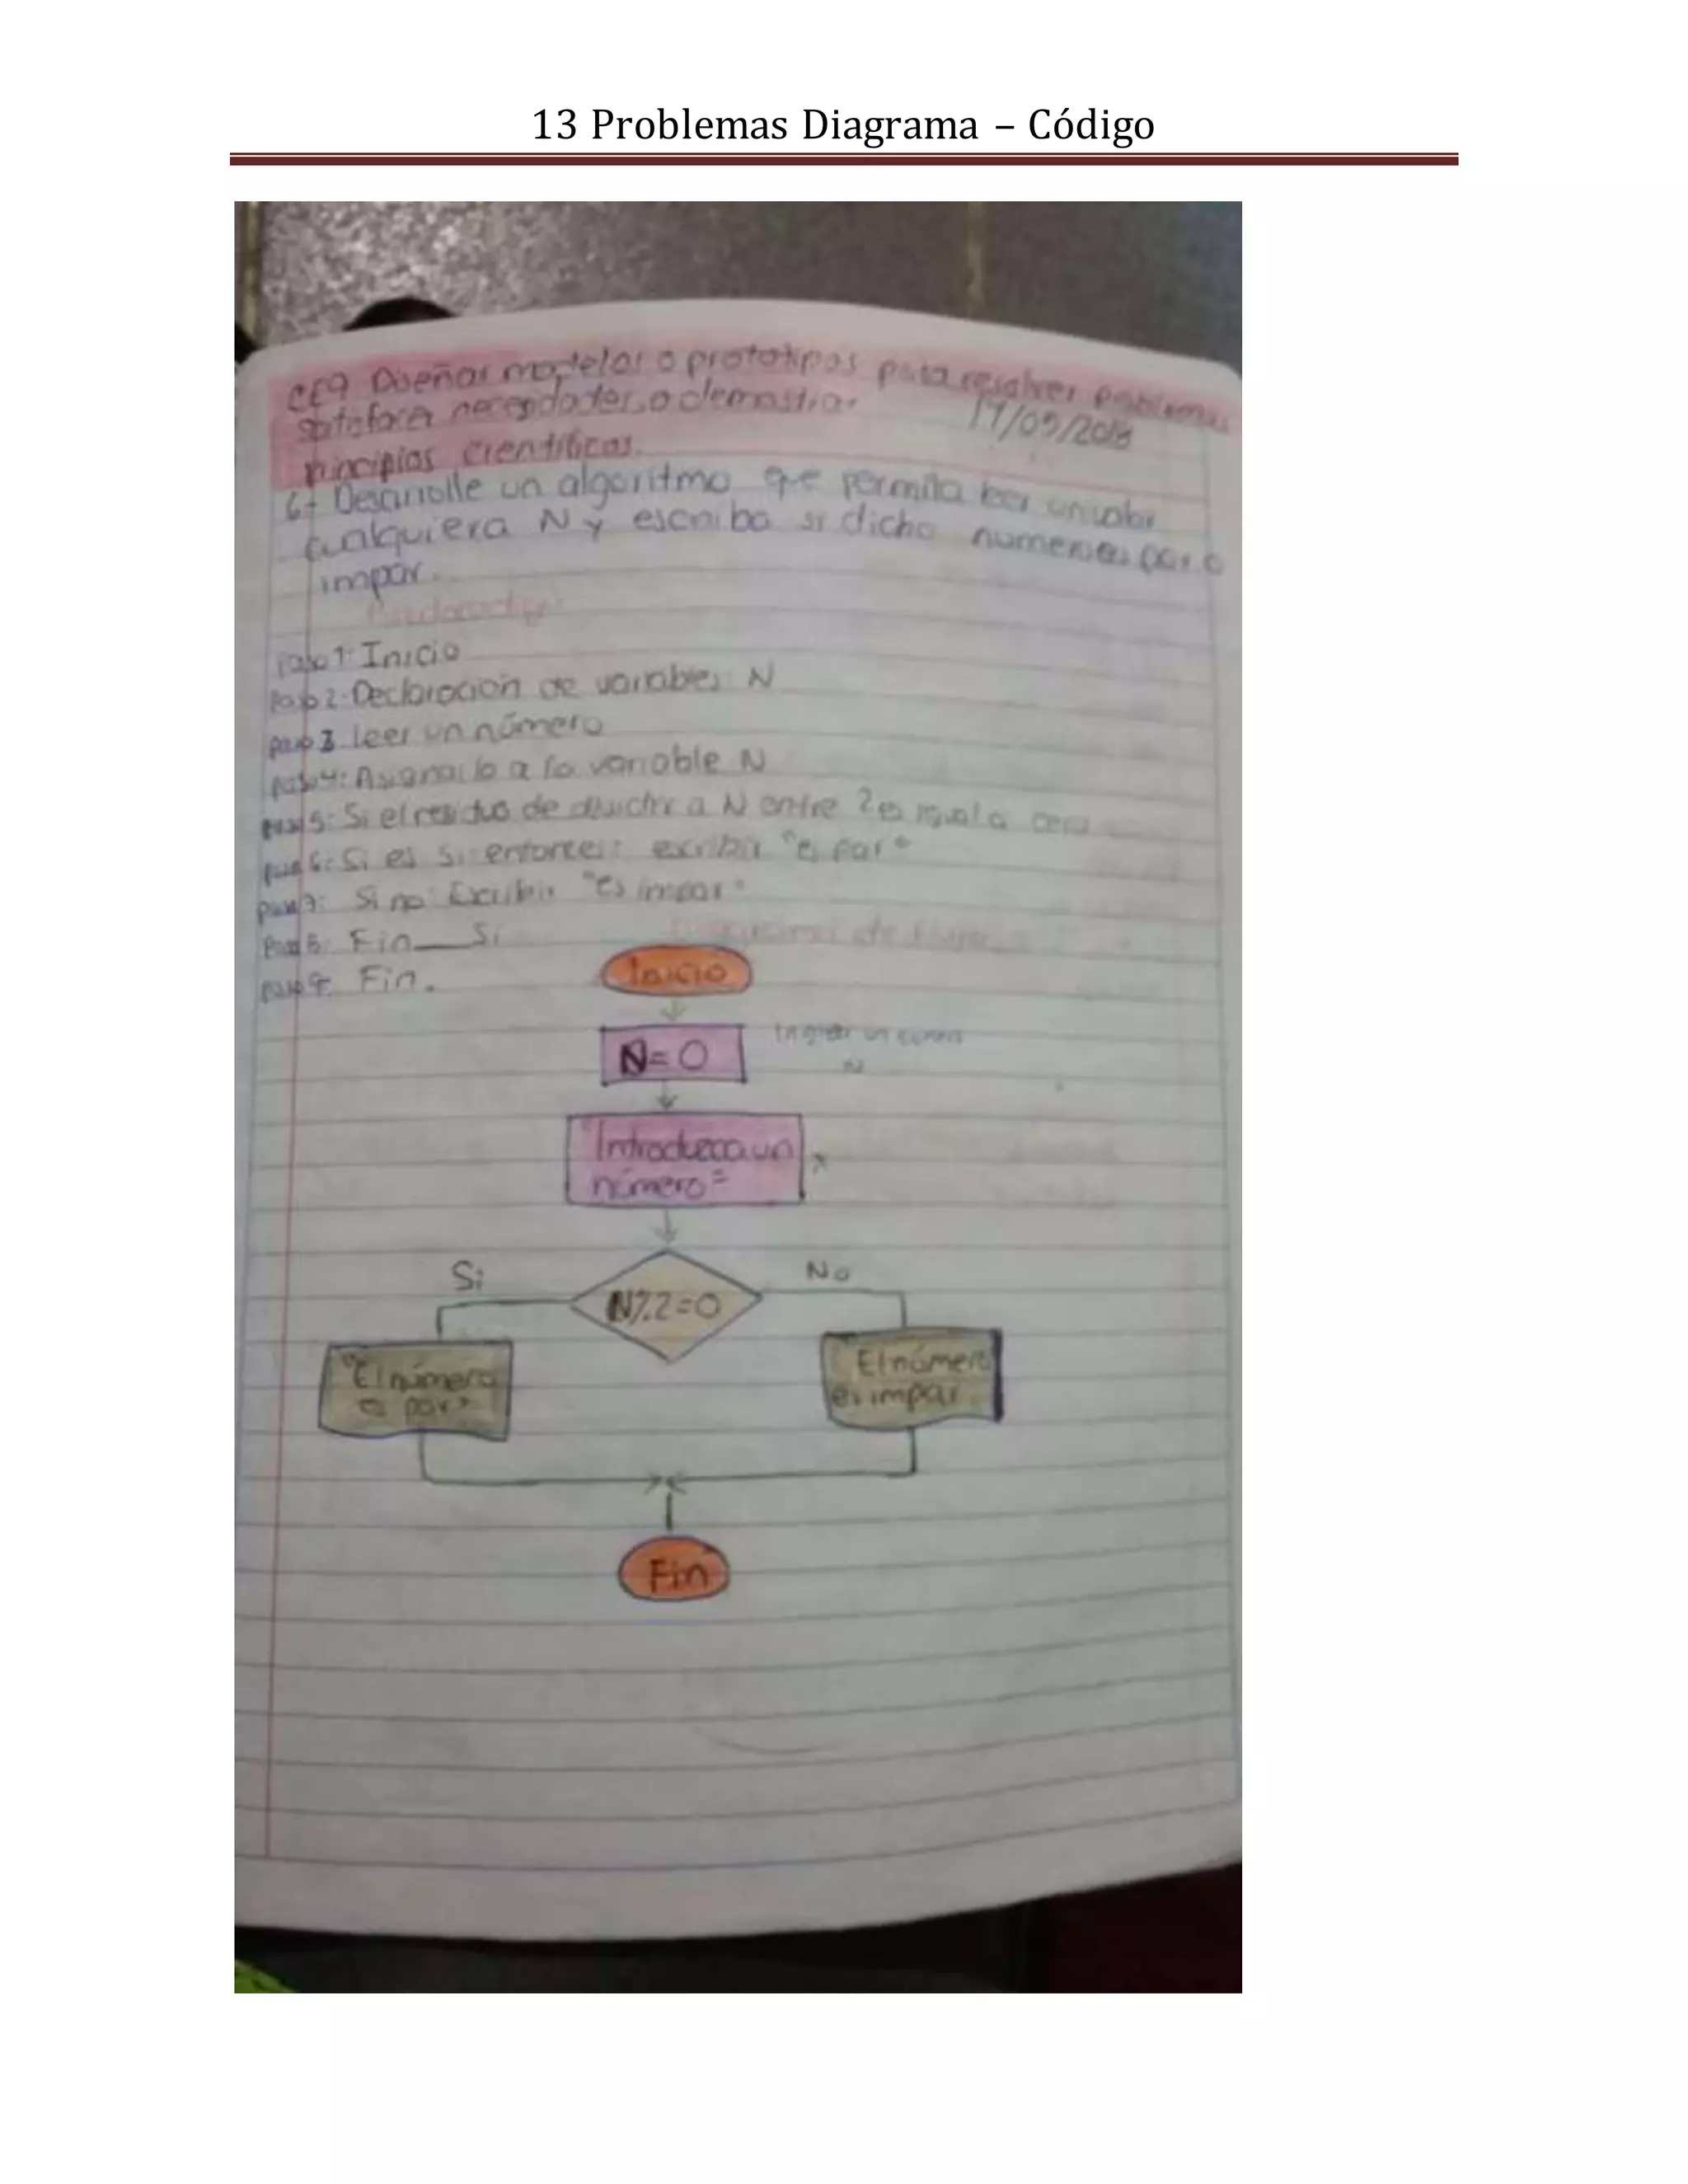 13 Problemas Diagrama – Código
CE9 Diseñar modelos o prototipos para resolver problemas
satisfacer necesidades o demostrar
17/05/2018
principios científicos.
6- Desarrolle un algoritmo que permita leer un valor
cualquiera N y escriba si dicho numero es par o
impar.
Pseudocodigo
paso 1: Inicio
Paso 2: Declaracion de variables N
paso 3 leer un número
paso 4: Asignarlo a la variable N
paso 5: Si el residuo de dividir a N entre 2 es igual a cero
paso 6: Si es si entonces: escribir "es par"
paso 7: Si no: Escribir "es impar"
Paso 8: Fin__Si
Diagrama de flujo
paso 9: Fin.
Inicio
N=0
Ingresar un
N
"Introduzca un
número"
Si
No
N%2=0
"El número
es par"
El número
es impar
Fin